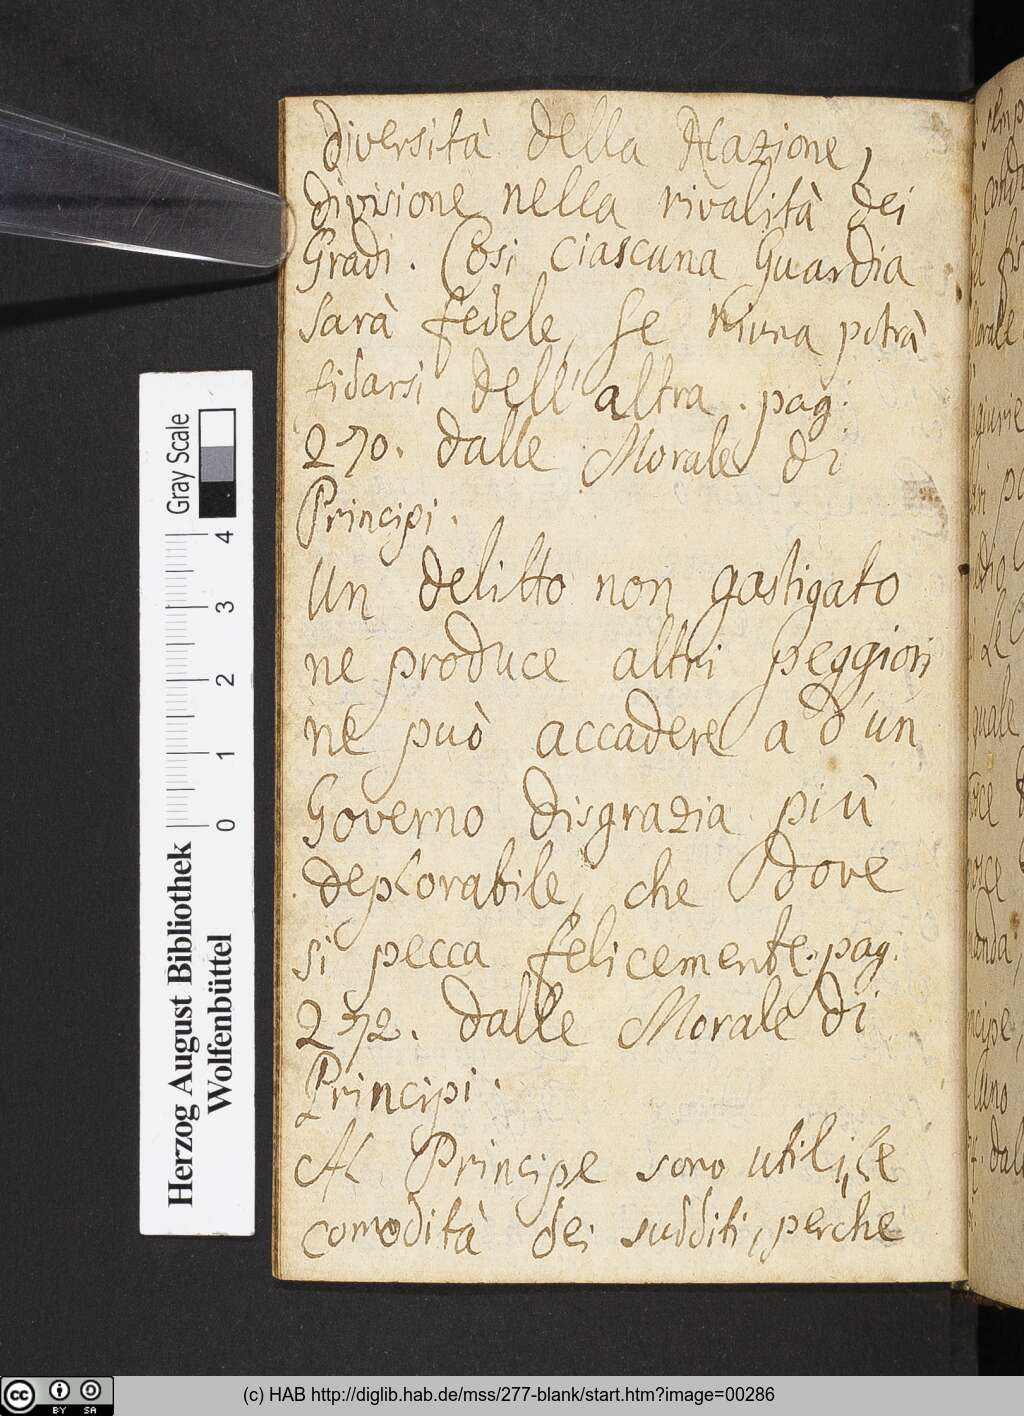 diversità della Nazione,
divisione nella rivalità dei
Gradi. Cosi ciascuna Guardia
sarà fedele, se niuna potrà
fidarsi dell'altra. pag:
270. dalle Morale di
Principi.
Un delitto non gastigato
ne produce altri peggiori
ne può accadere a d'un
Governo disgrazia più
deplorabile, che dove
si pecca felicemente. pag:
272. dalle Morale di
Principi.
Al Principe sono utili, le
comodità dei sudditi, perche
Gray Scale
4
3
2
1
0
Herzog August Bibliothek
Wolfenbüttel
cc BY SA
(c) HAB http://diglib.hab.de/mss/277-blank/start.htm?image=00286